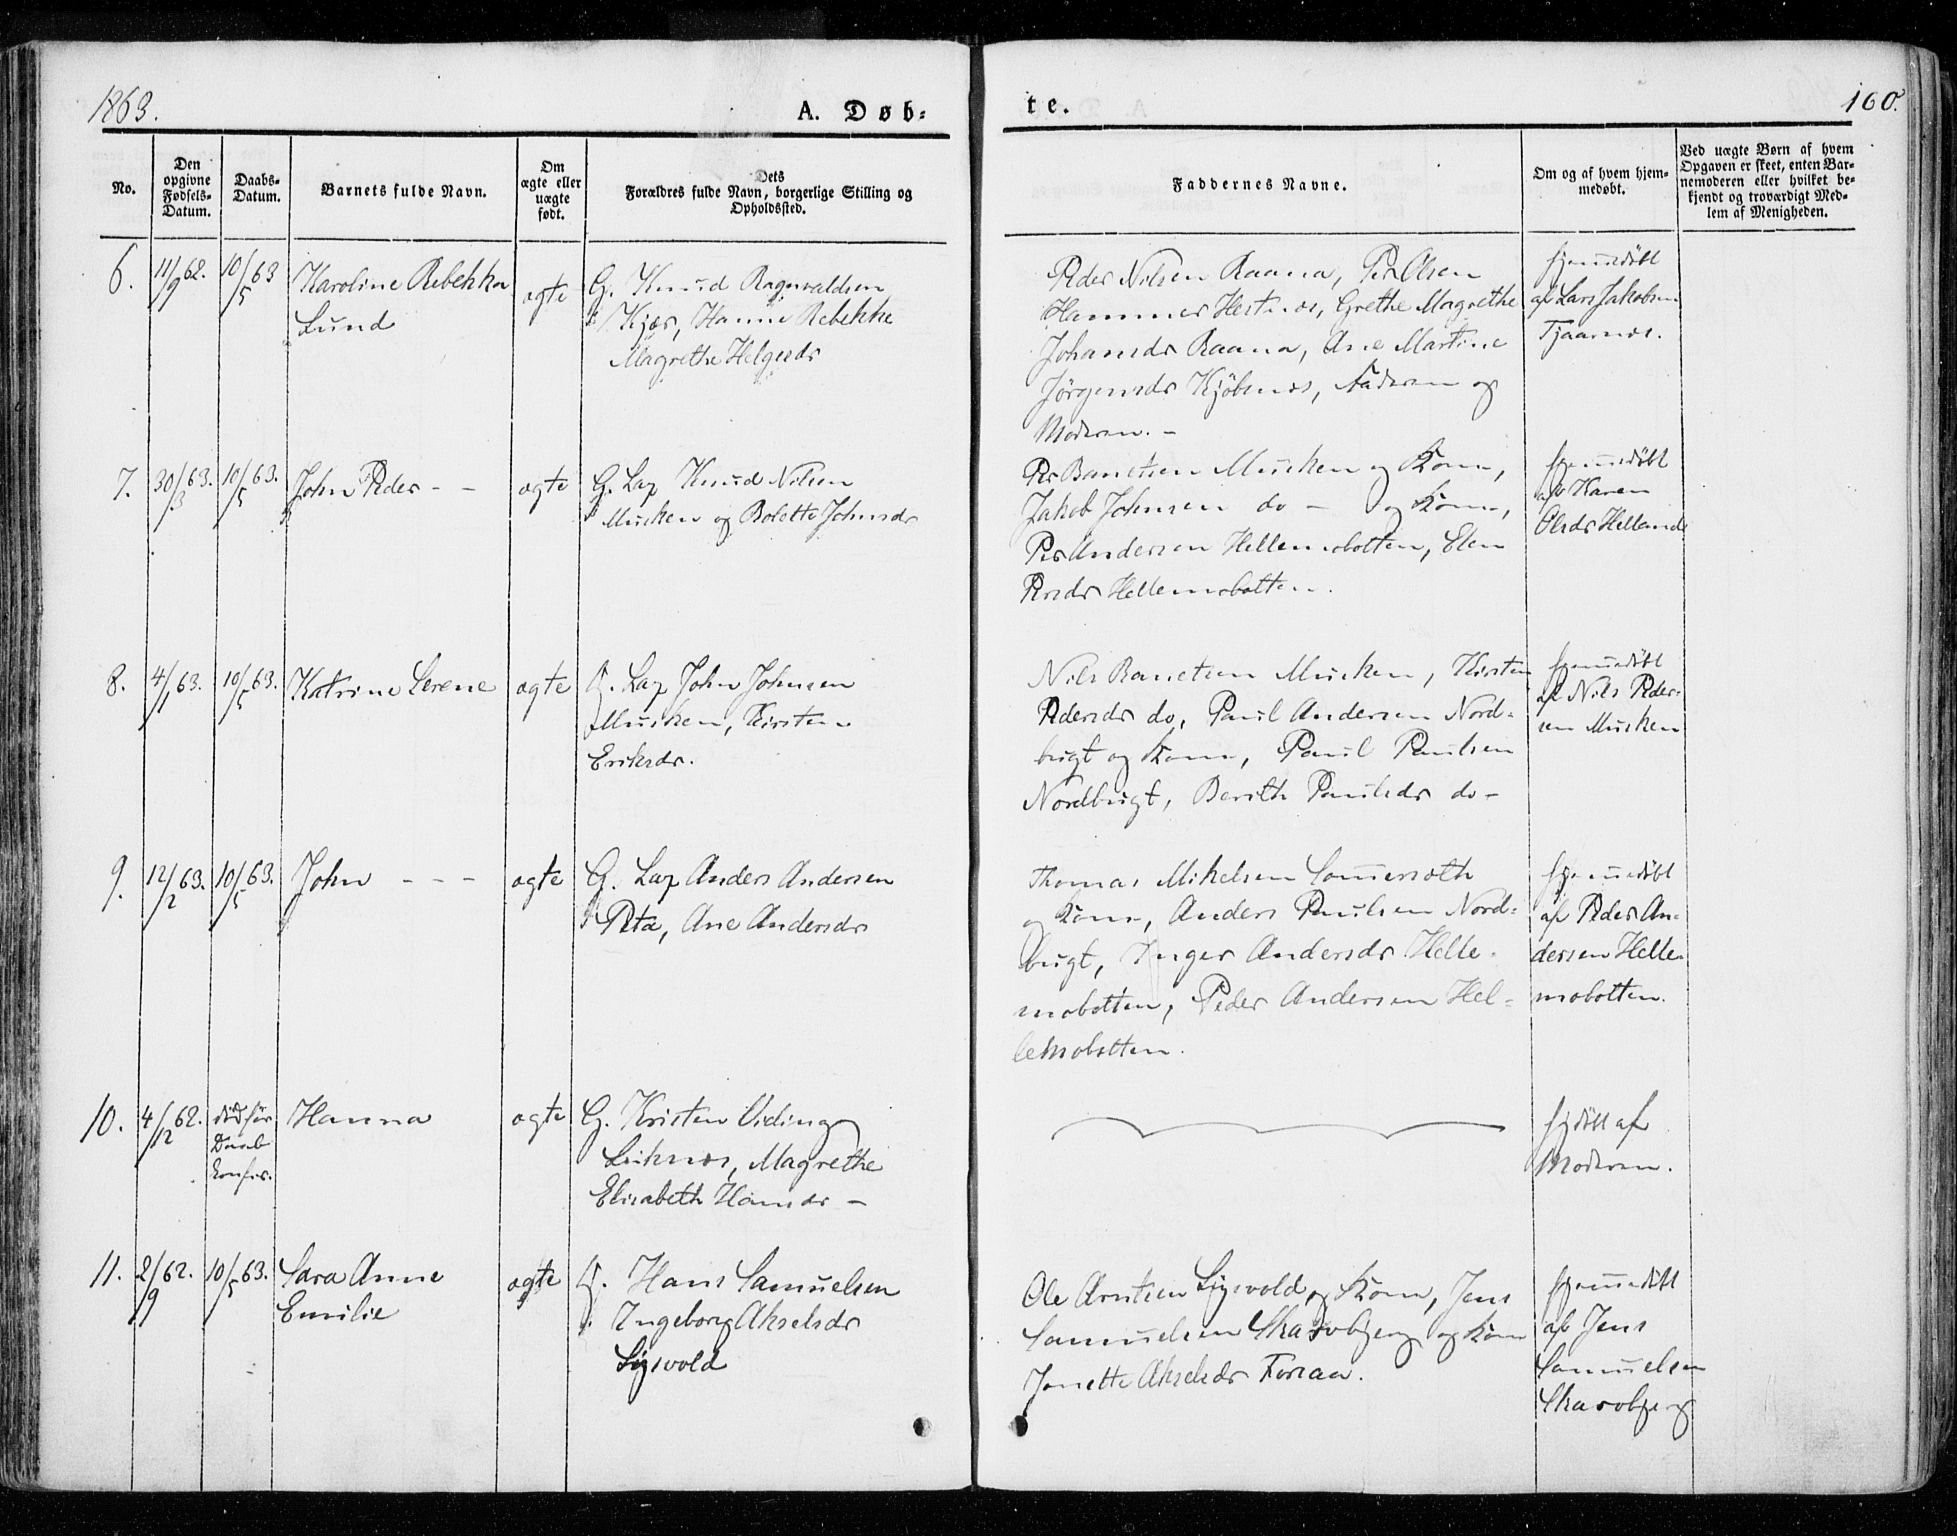 1863.
A. Døb-
te.
160.
No.
Den opgivne Fødsels-Datum.
Daabs-Datum.
Barnets fulde Navn.
Om ægte eller uægte født.
Dets Forældres fulde Navn, borgerlige Stilling og Opholdssted.
Faddernes Navne.
Om og af hvem hjem-medøbt.
Ved uægte Børn af hvem Opgaven er skeet, enten Bar-nemoderen eller hvilket be-kjendt og troværdigt Med-lem af Menigheden.
6. 11/9 62. 10/5 63 Karoline Rebekka
Lund
ægte
G. Knud Ragnvaldsen
Kjær, Hanne Rebekke
Magrethe Helgesdr
Peder Nilsen Raana, Per Olsen
Hammer Hestnæs, Grethe Magrethe
Johansdr Raana, Ane Martine
Jörgensdr Kjöbnæs, Faderen og
Moderen. –
hjemmedöbt
af Lars Jakobsen
Tjaarnæs.
7. 30/3 63. 10/5 63. John Peder - -
ægte
G. Lap Knud Nilsen
Musken og Bolette Johnsdr
Per Banetsen Musken og Kone,
Jakob Johnsen do – og Kone,
Per Andersen Hellemobotten, Elen
Persdr Hellemobotten.
hjemmedöbt
af Karen
Olsdr Helland
8. 4/1 63. 10/5 63. Katrine Serene
ægte
G. Lap John Johnsen
Musken, Kirsten
Eriksdr.
Nils Banetsen Musken, Kirsten
Pedersdr do, Paul Andersen Nord-
bugt og Kone, Paul Paulsen
Nordbugt, Berith Paulsdr do-
hjemmedöbt
af Nils Peder-
sen Musken
9. 12/2 63. 10/5 63. John - - -
ægte
G. Lap Anders Andersen
Peta, Ane Andersdr
Thomas Mikelsen Sommersæth
og Kone, Anders Paulsen Nord-
bugt, Inger Andersdr Helle-
mobotten, Peder Andersen Hel-
lemobotten.
hjemmedöbt
af Peder An-
dersen Helle-
mobotten.
10. 4/12 62. död för
Daab
konfir.
Hanna
ægte
G. Kristen Viding
Leiknæs, Magrethe
Elisabeth Hansdr –
hjdöbt af
Moderen.
11. 2/9 62. 10/5 63. Sara Anne
Emilie
ægte
G. Hans Samuelsen
Ingeborg Akselsdr
Ligvold
Ole Arntsen Ligvold og Kone, Jens
Samuelsen Skarvbjerg og Kone
Jonette Akselsdr Forsaa.
hjemmedöbt
af Jens
Samuelsen
Skarvbjerg